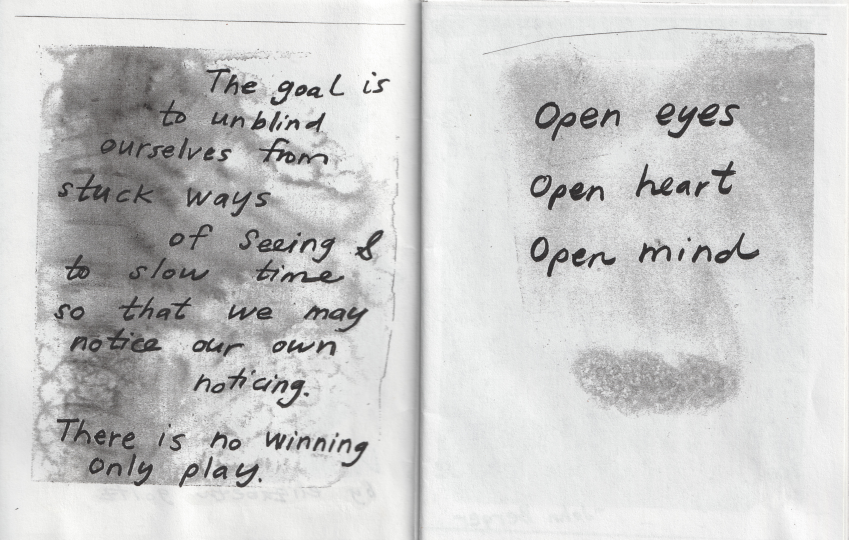 The goal is
to unblind
ourselves from
stuck ways
of seeing &
to slow time
so that we may
notice our own
noticing.
There is no winning
only play.
Open eyes
Open heart
Open mind